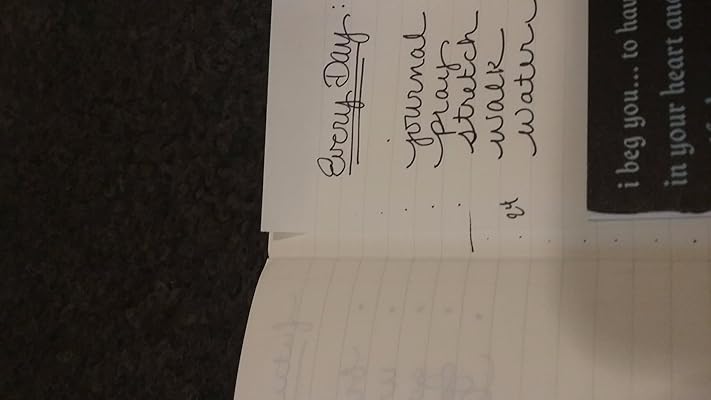 Every Day:
journal
pray
stretch
walk
water
i beg you... to hav
in your heart and